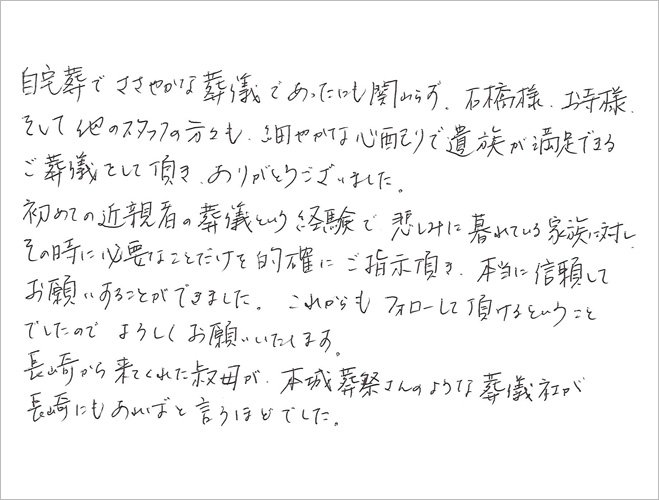 自宅葬でささやかな葬儀であったにも関わらず、石橋様、お寺様、
そして他のスタッフの方々も、細やかな心配りで遺族が満足できる
ご葬儀をして頂き、ありがとうございました。
初めての近親者の葬儀という経験で、悲しみに暮れている家族に対し、
その時に必要なことだけを的確にご指示頂き、本当に信頼して
お願いすることができました。これからもフォローして頂けるということ
でしたのでよろしくお願いいたします。
長崎から来てくれた叔母が、本城葬祭さんのような葬儀社が
長崎にもあればと言うほどでした。